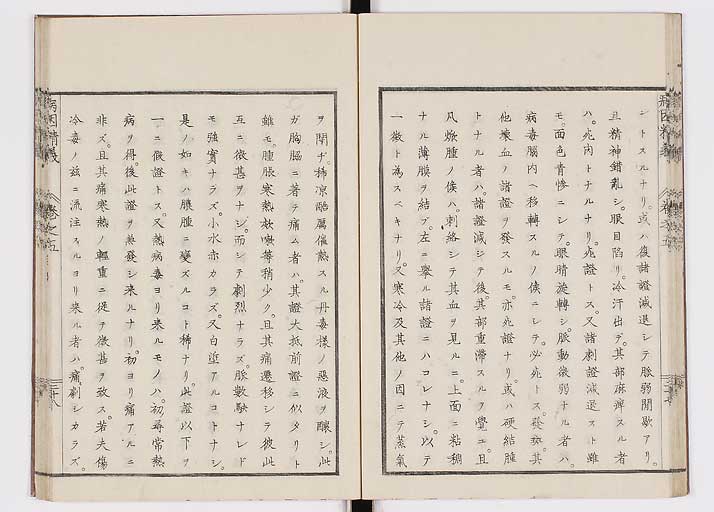 シトスルナリ。或ハ復諸證減退シテ脈弱間歇アリ。
且精神錯亂シ。眼目陷リ。冷汗出テ。其部麻痺スル者
ハ。死內トナルナリ。死證トス。又諸刺證減退スト雖
モ。面色青惨ニシテ。眼睛旋轉シ。脈動微弱ナル者ハ。
病毒腦內ヘ移轉スルノ候ニシテ。必死トス。發熱。其
他壞血ノ諸證ヲ發スルモ。亦死證ナリ。或ハ硬結腫
トナル者ハ。諸證減シテ後。其部重滯スルヲ覺ユ。且
凡焮腫ノ候ハ。刺絡シテ其血ヲ見ルニ。上面ニ粘稠
ナル薄膜ヲ結ブ。左ニ擧ル諸證ニハコレナシ。以テ
一徴ト為スベキナリ。又寒冷及其他ノ因ニテ蒸氣
ヲ閉ヂ。稀涼酷厲催熱スル丹毒樣ノ惡液ヲ釀シ。此
ガ胸膈ニ著テ痛ム者ハ。其證大抵前證ニ似タリト
雖モ。腫脹寒熱欬嗽等稍少ク。且其痛遷移シテ彼此
互ニ微甚ヲナシ。而シテ劇烈ナラズ。脈數駃ナレド
モ強實ナラズ。小水赤カラズ。又白垽アルコトナシ。
是ノ如キハ膿腫ニ變ズルコト稀ナリ。此證以下ヲ
一ニ假證トス。又熱病毒ヨリ来ルモノハ。初尋常熱
病ヲ得。後此證ヲ兼發シ来ルナリ。初ヨリ痛アルニ
非ズ。且其痛寒熱ノ輕重ニ從テ微甚ヲ致ス。若夫傷
冷毒ノ茲ニ流注スルヨリ来ル者ハ。痛劇シカラズ。
病因精義
卷之五
三十八